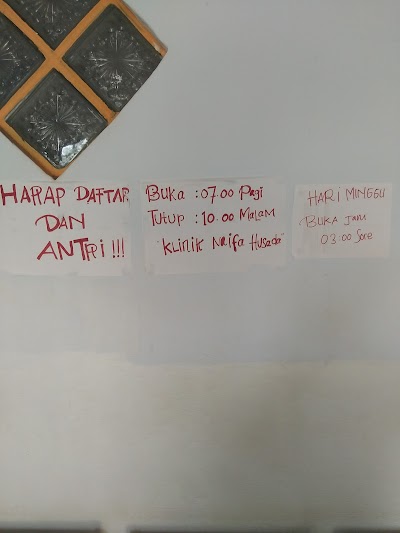 HARAP DAFTAR
DAN
ANTRI !!!
BUKA : 07.00 Pagi
TUTUP : 10.00 MALAM
"KLINIK Naifa Husada"
HARI MINGGU
BUKA JAM
03:00 Sore